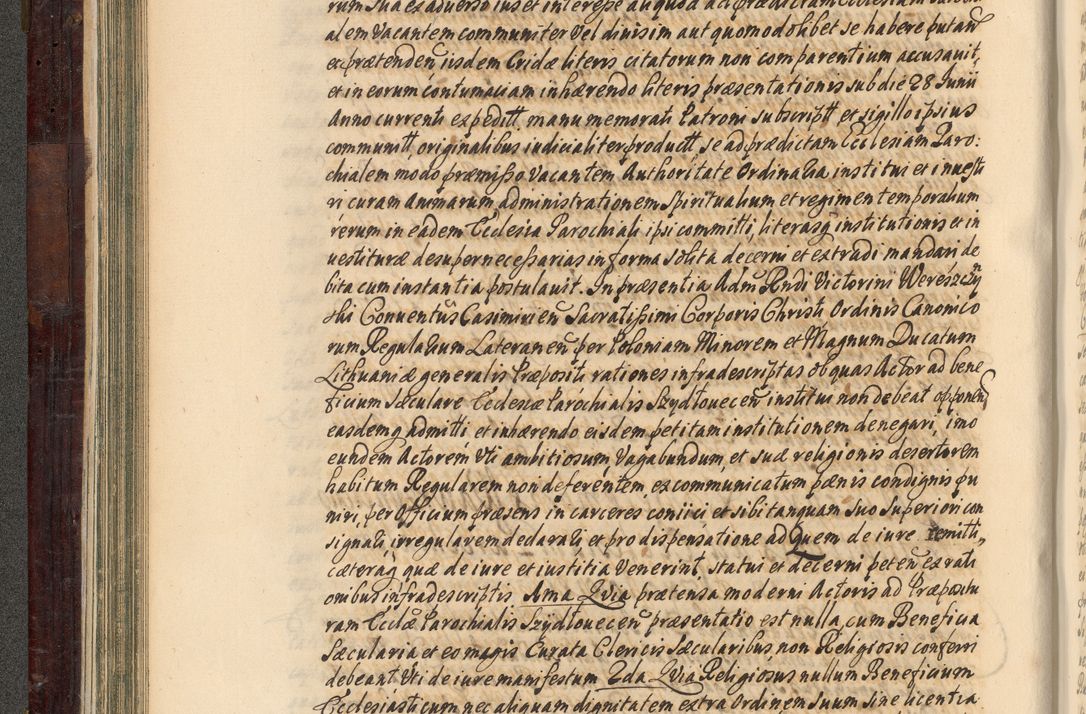 rum sua ex adverso ius et interesse aliquod ad prædictam Ecclesiam
alem vacantem communiter vel divisim aut quomodolibet se habere putan
et prætenden iisdem Cridæ literis citatorum non comparentium accusavit,
et in eorum contumaciam inhærendo literis præsentationis sub die 28 Junii
Anno currenti expeditt. manu memorati Patroni subscriptt et sigillo ipsius
communitt, originalibus iudicialiter productt se ad prædictam Ecclesiam Paro:
chialem modo præmisso vacantem Authoritate Ordinaria institui et investi
ri curam animarum administrationem Spiritualium et regimen temporalium
rerum in eadem Ecclesia Parochiali ipsi committi, literasq institutionis et in
vestituræ desuper necessarias in forma solita decerni et extradi mandari de
bita cum instantia postulavit. In præsentia Adm Rndi Victorini Wereszczyn
ski Conventûs Casimirien Sacratissimi Corporis Christi Ordinis Canonico
rum Regularium Lateranen per Poloniam Minorem et Magnum Ducatum
Lithuaniæ generalis Præpositi rationes infradescriptas ob quas Actor ad bene
ficium sæculare Ecclesiæ Parochialis Szydlovecen institui non debeat opponen
easdemq admitti et inhærendo eisdem petitam institutionem denegari, imo
eundem Actorem uti ambitiosum, vagabundum, et suæ religionis desertorem
habitum Regularem non deferentem, excommunicatum pænis condignis pu
niri, per Officium præsens in carceres coniici et sibi tanquam suo Superiori con
signari, irregularem declarari et pro dispensatione ad Quem de iure remitti,
cæteraq quæ de iure et iustitia venerint, statui et decerni peten ex rati
onibus infradescriptis Ima Quia prætensa moderni Actoris ad Præpositu
ram Ecclæ Parochialis Szydlovecen præsentatio est nulla, cum Beneficia
Sæcularia et eo magis Curata Clericis Sæcularibus non Religiosis conferri
debeant uti de iure manifestum 2da Quia Religiosus nullum Beneficium
Ecclesiasticum nec aliquam dignitatem extra Ordinem suum sine licentia